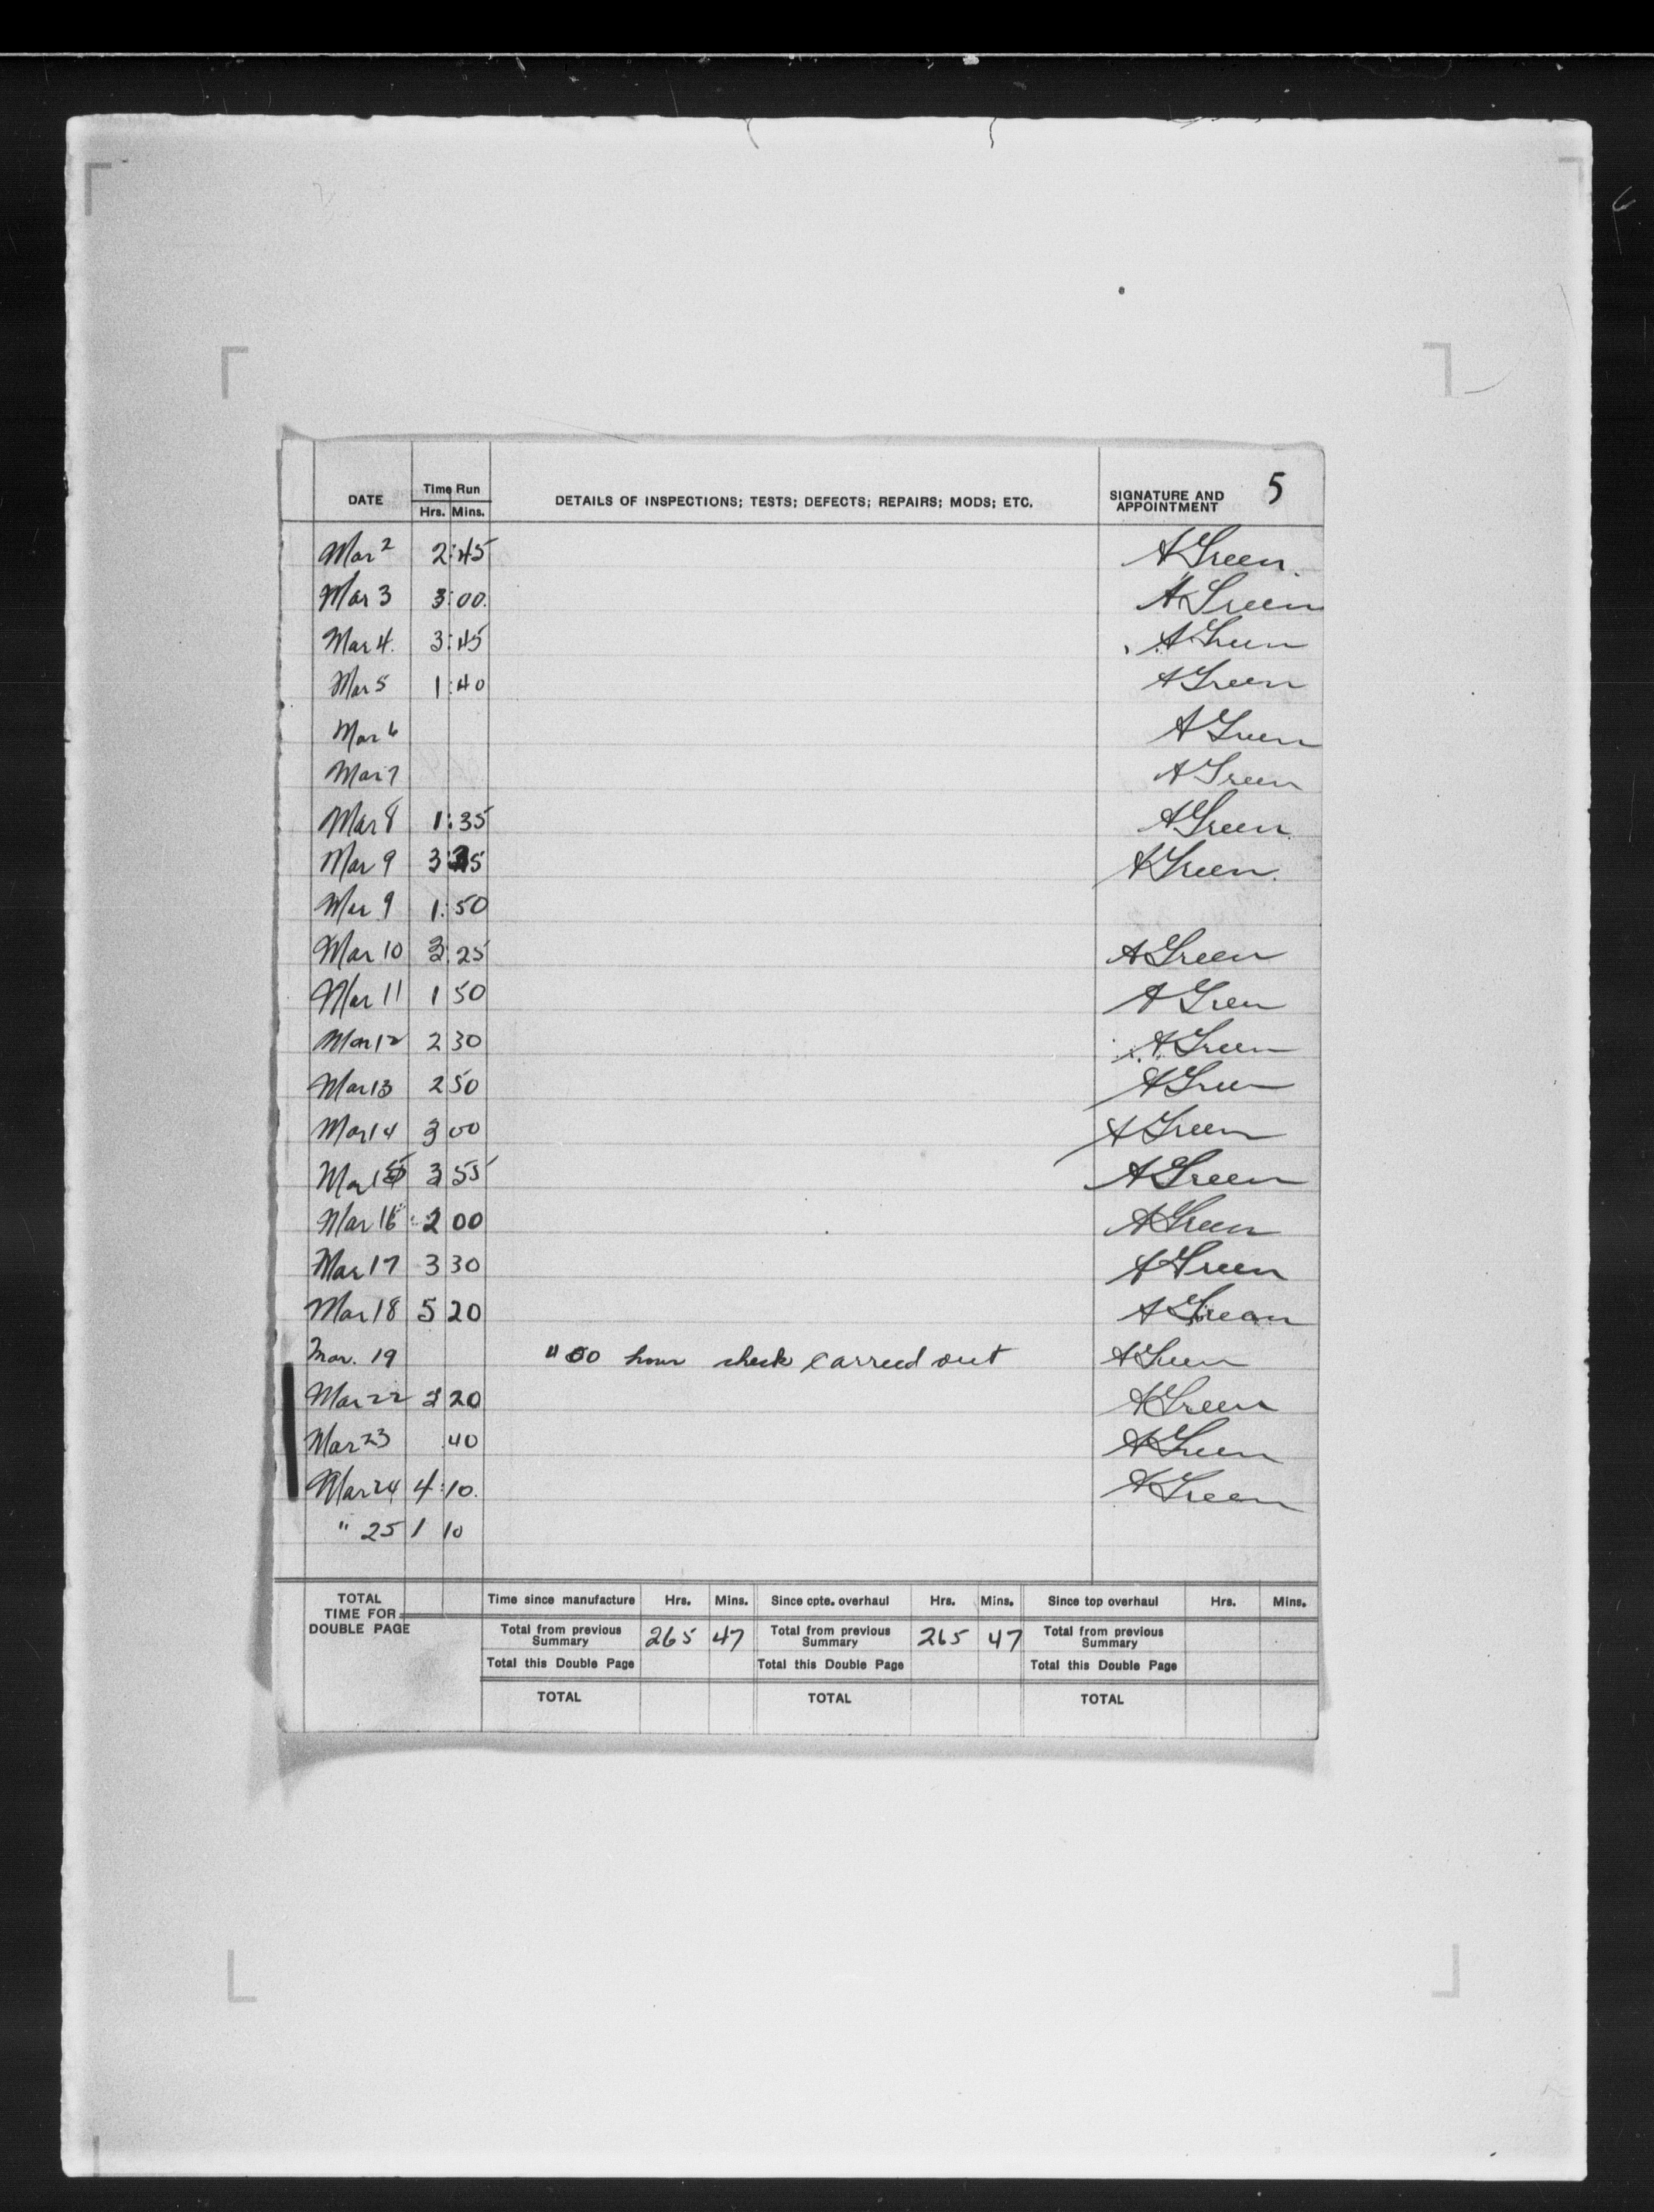 5
DATE Time Run DETAILS OF INSPECTIONS; TESTS; DEFECTS; REPAIRS; MODS; ETC. SIGNATURE AND APPOINTMENT
Hrs. Mins.
Mar 2 2:45 A Green.
Mar 3 3:00. A Green
Mar 4. 3:45 A Green
Mar 5 1:40 A Green
Mar 6 A Green
Mar 7 A Green
Mar 8 1:35 A Green
Mar 9 A Green.
Mar 9 1:50
Mar 10 3:25 A Green
Mar 11 1 50 A Green
Mar 12 2 30 A Green
Mar 13 2 50 A Green
Mar 14 3 00 A Green
Mar 15 3 55 A Green
Mar 16 2 00 A Green
Mar 17 3 30 A Green
Mar 18 5 20 A Green
Mar. 19 hour check carried out A Green
Mar 22 20 A Green
Mar 23 40 A Green
Mar 24 4:10. A Green
" 25 1 10
TOTAL TIME FOR DOUBLE PAGE
Time since manufacture Hrs. Mins. Since cpte. overhaul Hrs. Mins. Since top overhaul Hrs. Mins.
Total from previous Summary 265 47 Total from previous Summary 265 47 Total from previous Summary
Total this Double Page Total this Double Page Total this Double Page
TOTAL TOTAL TOTAL